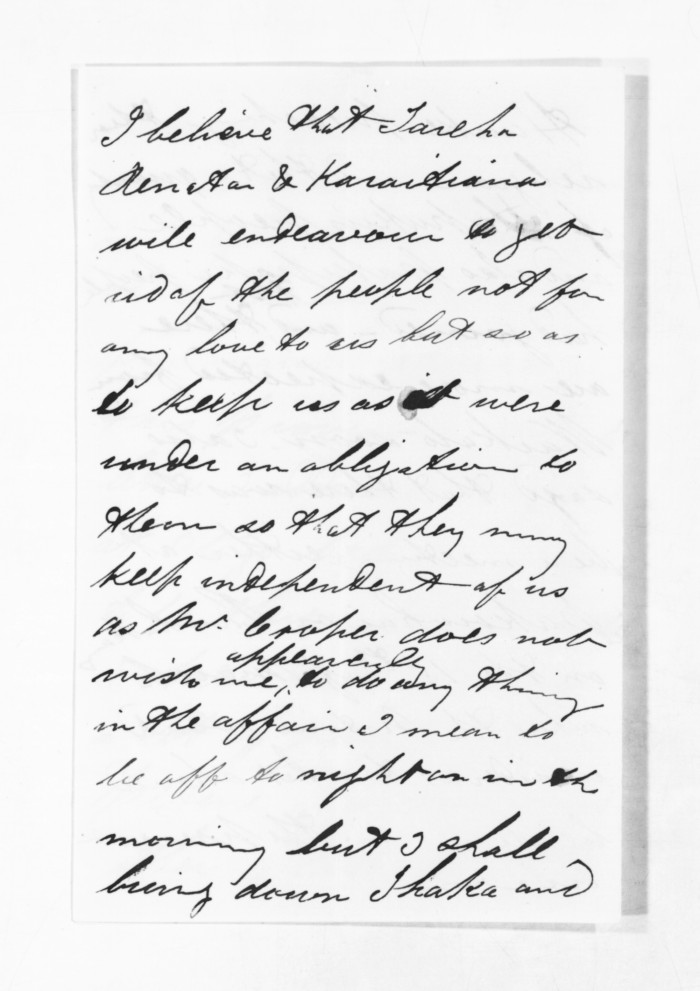 I believe that Tareha
Renata & Karaitiana
will endeavour to get
rid of the people not for
any love to us but so as
to keep us as it were
under an obligation to
them so that they may
keep independent of us
as Mr. Cooper does not
appearently
wish me, to do any thing
in the affair I mean to
be off to night or in th
morning but I shall
bring down Ihaka and